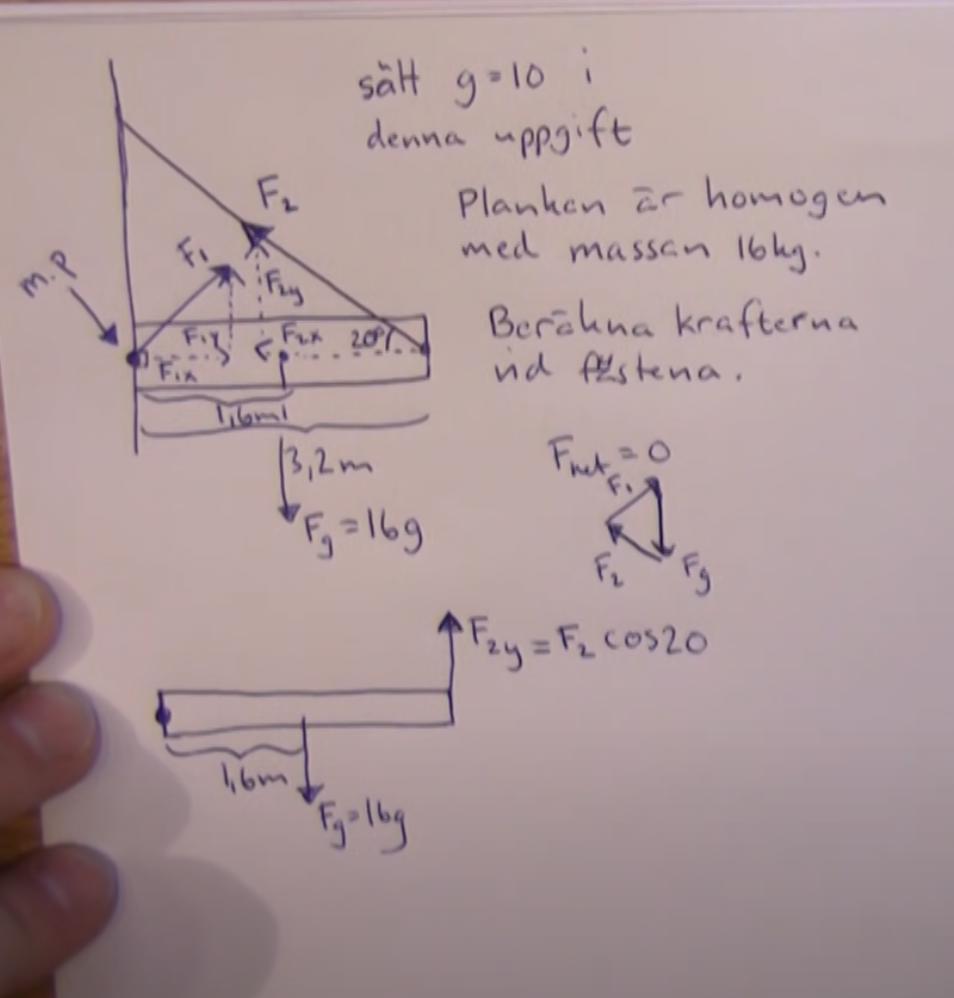 sätt g=10 i
denna uppgift
Plankan är homogen
med massan 16kg.
Beräkna krafterna
vid fästena.
F₂
F₁
m.p
F₂y
F₁y
F₂x
20°
F₁x
1,6m
3,2m
Fg=16g
Fnet=0
F₁
F₂
Fg
F₂y=F₂cos20
1,6m
Fg=16g